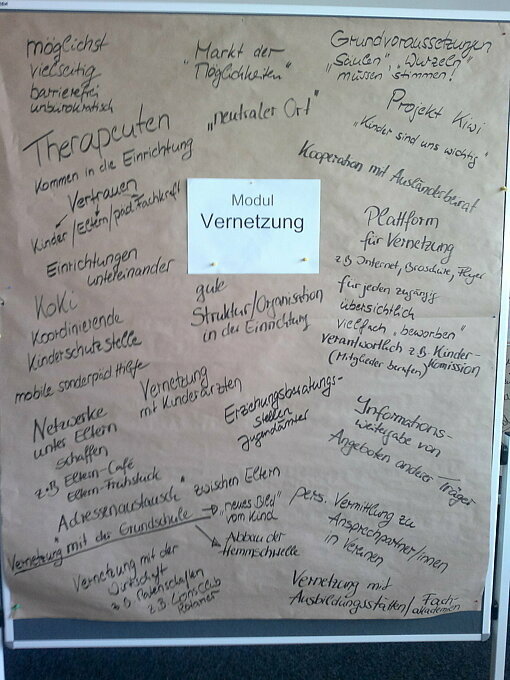 möglichst
vielseitig
barrierefrei
unbürokratisch
„Markt der
Möglichkeiten"
Grundvoraussetzungen
„Säulen", „Wurzeln"
müssen stimmen!
„neutraler Ort"
Projekt Kiwi
„Kinder sind uns wichtig"
Therapeuten
kommen in die Einrichtung
Kooperation mit Ausländerbeirat
Vertrauen
Kinder/Eltern/päd. Fachkraft
Modul
Vernetzung
Plattform
für Vernetzung
z.B Internet, Broschüre, Flyer
für jeden zugängig
übersichtlich
vielfach „beworben"
verantwortlich z.B. Kinder-
(Mitglieder berufen) komission
Einrichtungen
untereinander
gute
Struktur/Organisation
in der Einrichtung
KoKi
Koordinierende
Kinderschutzstelle
mobile sonderpäd Hilfe
Vernetzung
mit Kinderärzten
Erziehungsberatungs-
stellen
Jugendämter
Informations-
weitergabe von
Angeboten anderer Träger
Netzwerke
unter Eltern
schaffen
z.B Eltern-Café
Eltern-Frühstück
„Adressenaustausch" zwischen Eltern
Vernetzung mit der Grundschule → „neues Bild"
vom Kind
Abbau der
Hemmschwelle
pers. Vermittlung zu
Ansprechpartner/innen
in Vereinen
Vernetzung mit der
Wirtschaft
z.B Patenschaften
z.B. Lions Club
Rotarier
Vernetzung mit
Ausbildungsstätten/Fach-
akademien